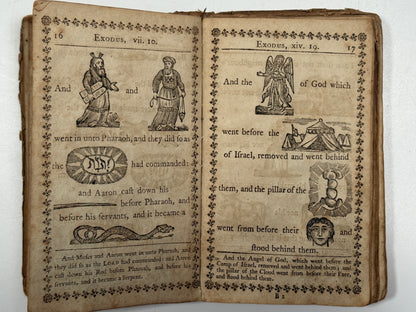 16
Exodus, vii. 10.
And and
went in unto Pharaoh, and they did so as
the had commanded:
and Aaron cast down his
before Pharaoh, and
before his servants, and it became a
And Moses and Aaron went in unto Pharaoh, and
they did so as the LORD had commanded: and Aaron
cast down his Rod before Pharaoh, and before his
servants, and it became a serpent.
Exodus, xiv. 19.
17
And the of God which
went before the
of Israel, removed and went behind
them, and the pillar of the
went from before their and
stood behind them.
And the Angel of God, which went before the
Camp of Israel, removed and went behind them; and
the pillar of the Cloud went from before their Face,
and stood behind them.
B 2